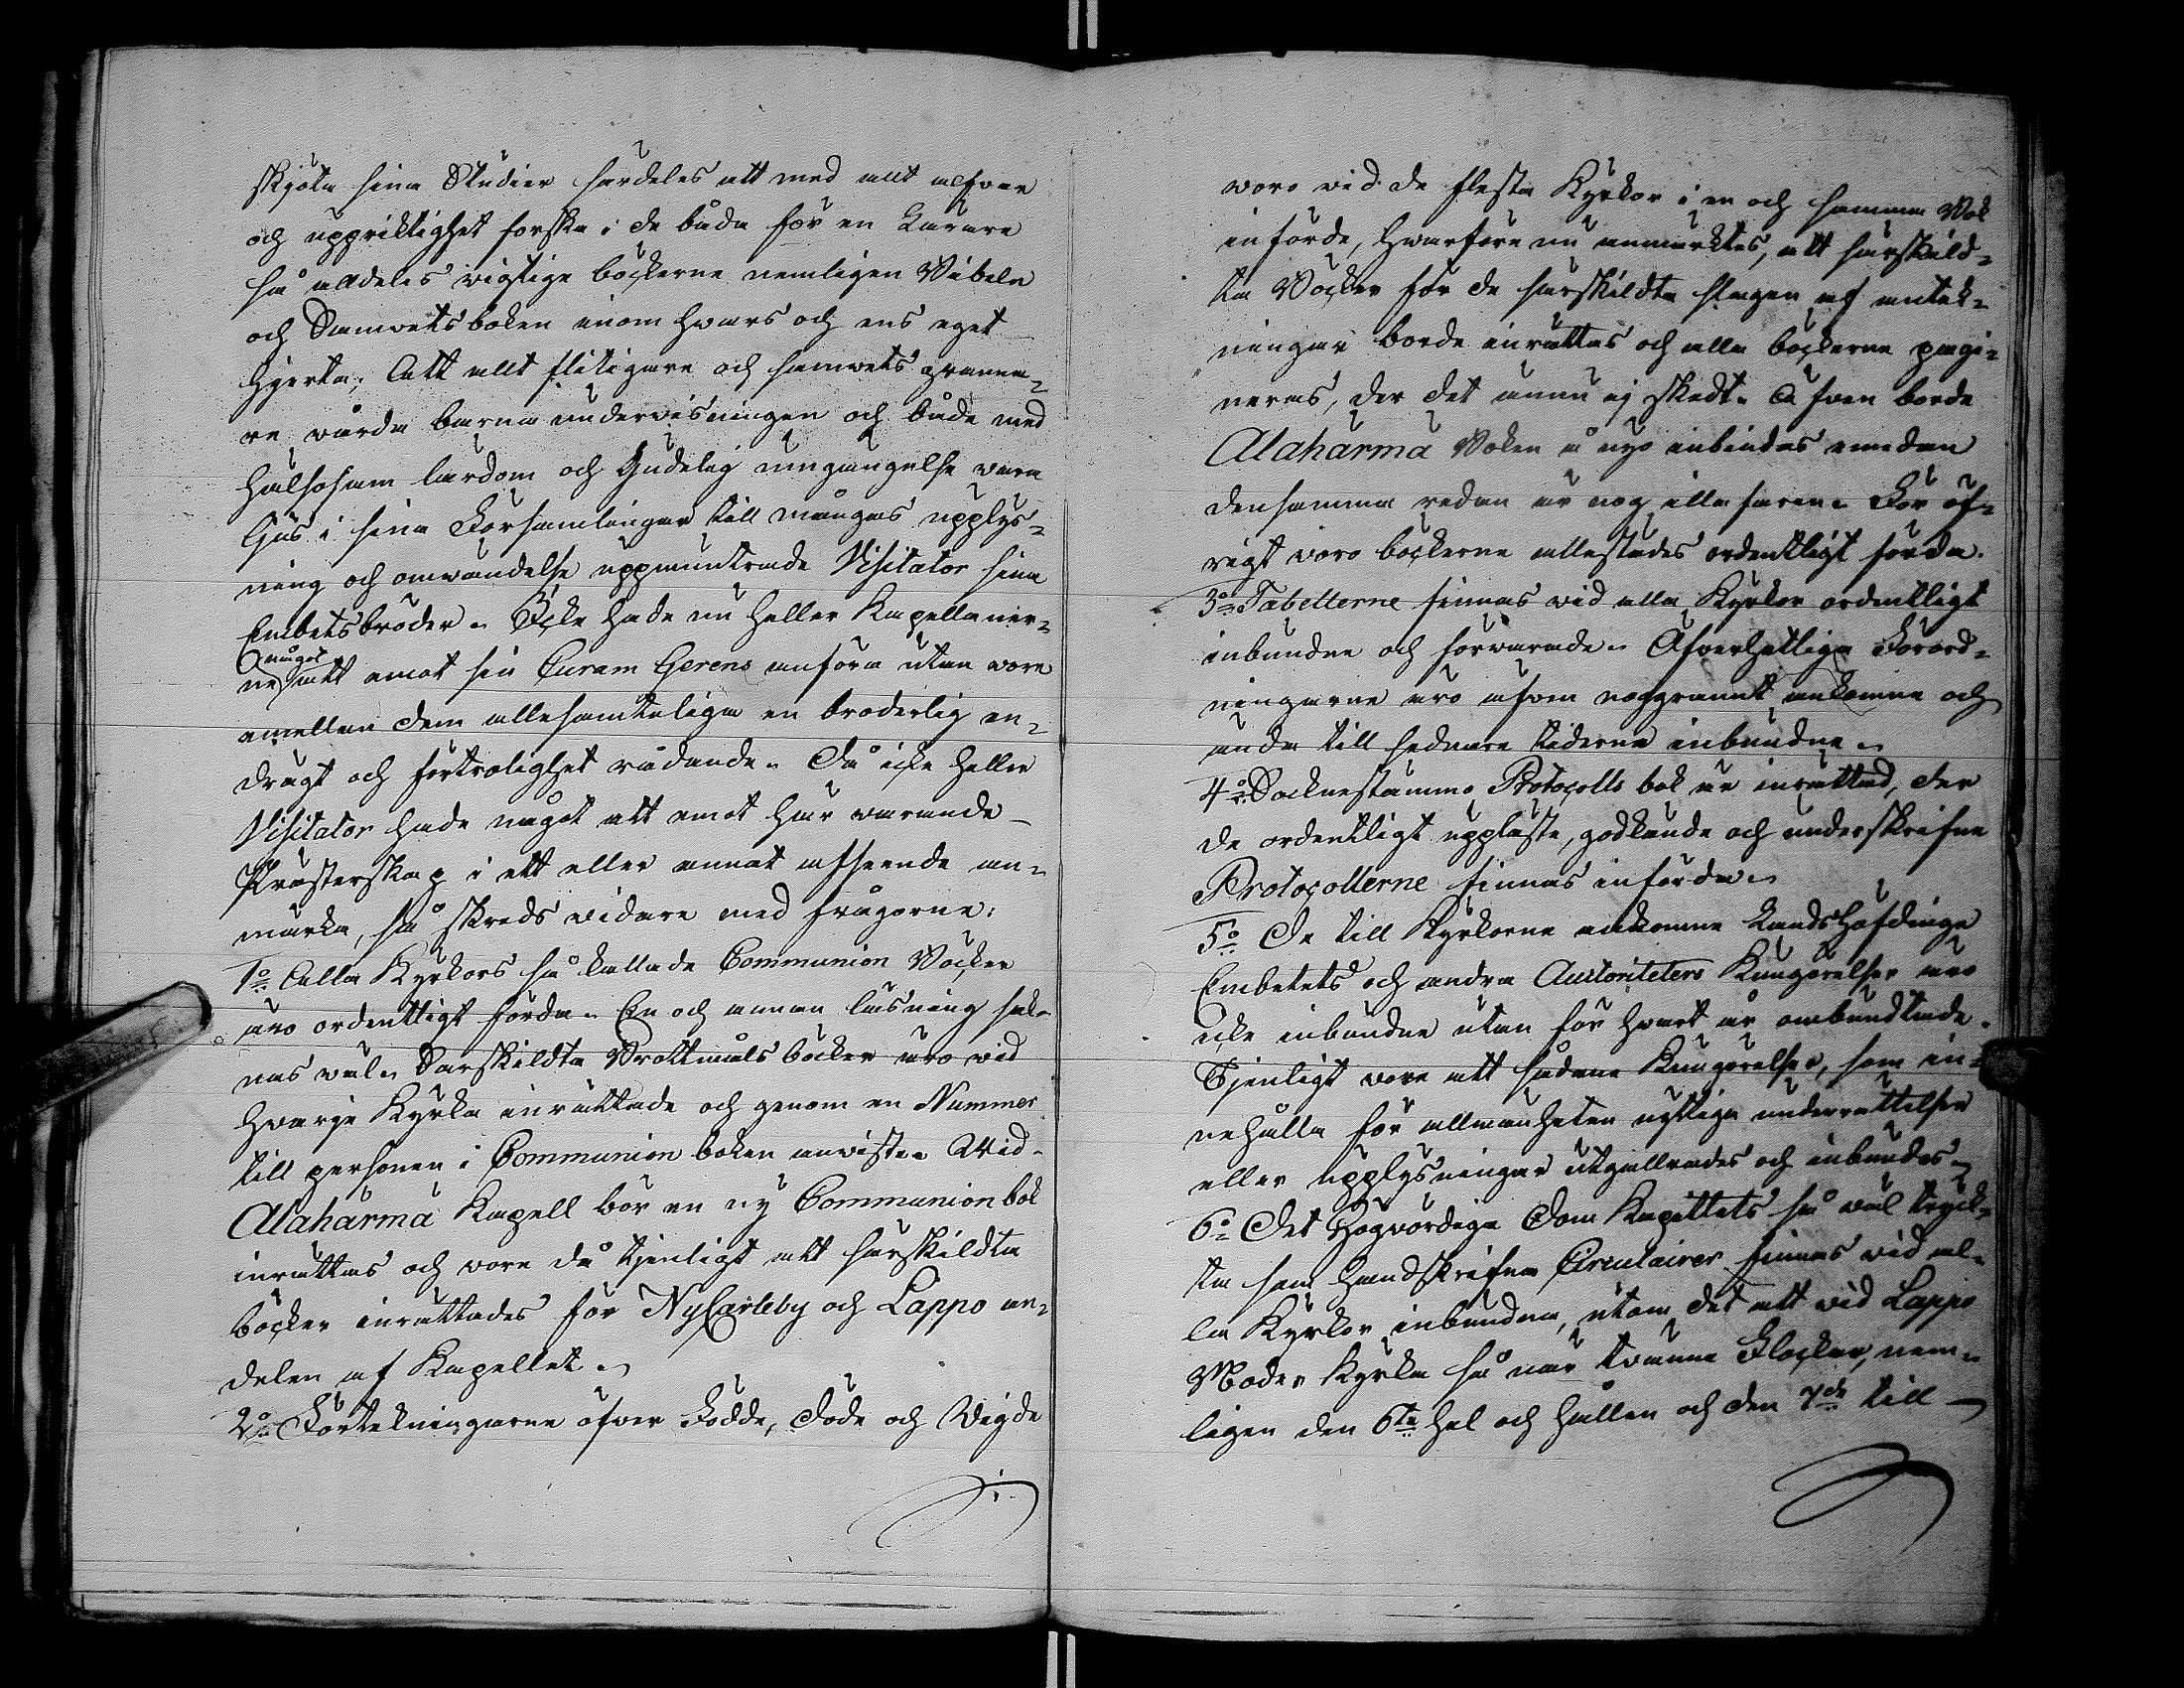 skjöta sina Studier särdeles att med allt alfvar
och uppriktighet forska i de båda för en Lärare
så alldeles vigtige böckerne nemligen Bibeln
och Samvetsboken inom hvars och ens eget
hjerta; Att allt flitigare och samvets granna-
re vårda barna undervisningen och både med
hälsosam lärdom och Gudelig umgängelse vara
ljus i sina Församlingar till mångas upplys-
ning och omvändelse uppmuntrade Visitator sina
Embetsbröder. Icke hade nu heller Kapellaner-
något
ne att emot sin Curam Gerens anföra utan vore
emellan dem allesamteliga en broderlig en-
drägt och förtrolighet rådande. Då icke heller
Visitator hade något att emot här varande
Prästerskap i ett eller annat afseende an-
märka, så skreds vidare med frågorne:
1o Alla Kyrkors så kallade Communion Böcker
äro ordentligt förda. En och annan läsning sak-
nas väl. Särskildta Brottmåls böcker äro vid
hvarje Kyrka inrättade och genom en Nummer
till personen i Communion boken anviste. Vid
Alahärmä Kapell bör en ny Communionbok
inrättas och vore då tjenligt att särskildta
böcker inrättades för NyCarleby och Lappo an-
delen af Kapellet.
2o Förtekningarne öfver Födde, Döde och Vigde
voro vid de flesta Kyrkor i en och samma Bok
införde, hvarföre nu anmärktes, att särskild-
ta Böcker för de särskildta slagen af antek-
ningar borde inrättas och alla böckerna pagi-
neras, der det ännu ej skedt. Äfven borde
Alahärmä Boken å nyo inbindas emedan
densamma redan är nog illa faren. För öf-
rigt voro böckerne allestädes ordentligt förda.
3o Tabellerne finnas vid alla Kyrkor ordentligt
inbundne och förvarade. Öfverhetliga Förord-
ningarne äro äfven noggrannt ankomne och
ända till sednare tiderne inbundne.
4o Socknestämmo Protocolls bok är inrättad, der
de ordentligt uppläste, godkände och underskrifne
Protocollerne finnas införda.
5o De till Kyrkorne ankomne Landshöfdinge
Embetets och andra Autoriteters Kungörelser äro
icke inbundne utan för hvart år ombundtade.
Tjenligt vore att sådane Kungörelser, som in-
nehålla för allmänheten nyttiga underrättelser
eller upplysningar utgallrades och inbundos.
6o Det Högvördiga Dom Kapitlets så väl tryck-
ta som handskrifna Circulairer finnas vid al-
la Kyrkor inbundna, utom det att vid Lappo
Moder Kyrka så när tvänne Flockar, nem-
ligen den 6te hel och hållen och den 7de till